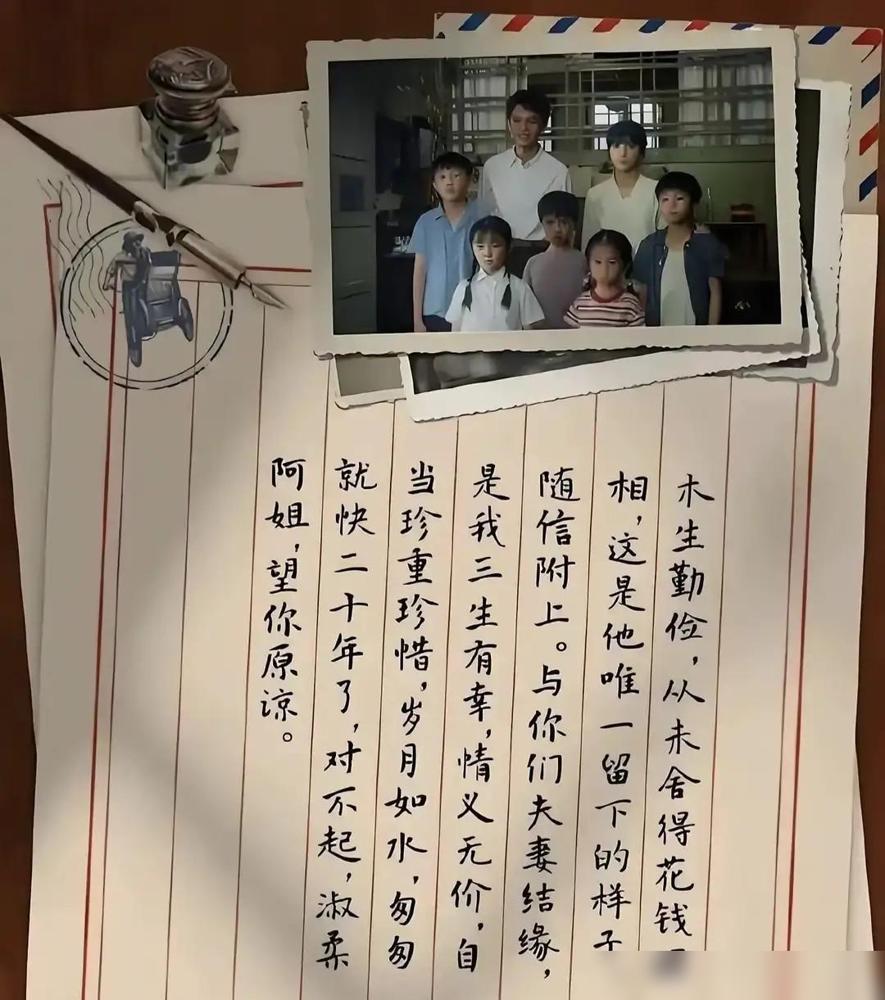 木生勤俭，从未舍得花钱
相，这是他唯一留下的样子
随信附上。与你们夫妻结缘，
是我三生有幸，情义无价，自
当珍重珍惜，岁月如水，匆匆
就快二十年了，对不起，淑柔
阿姐，望你原谅。